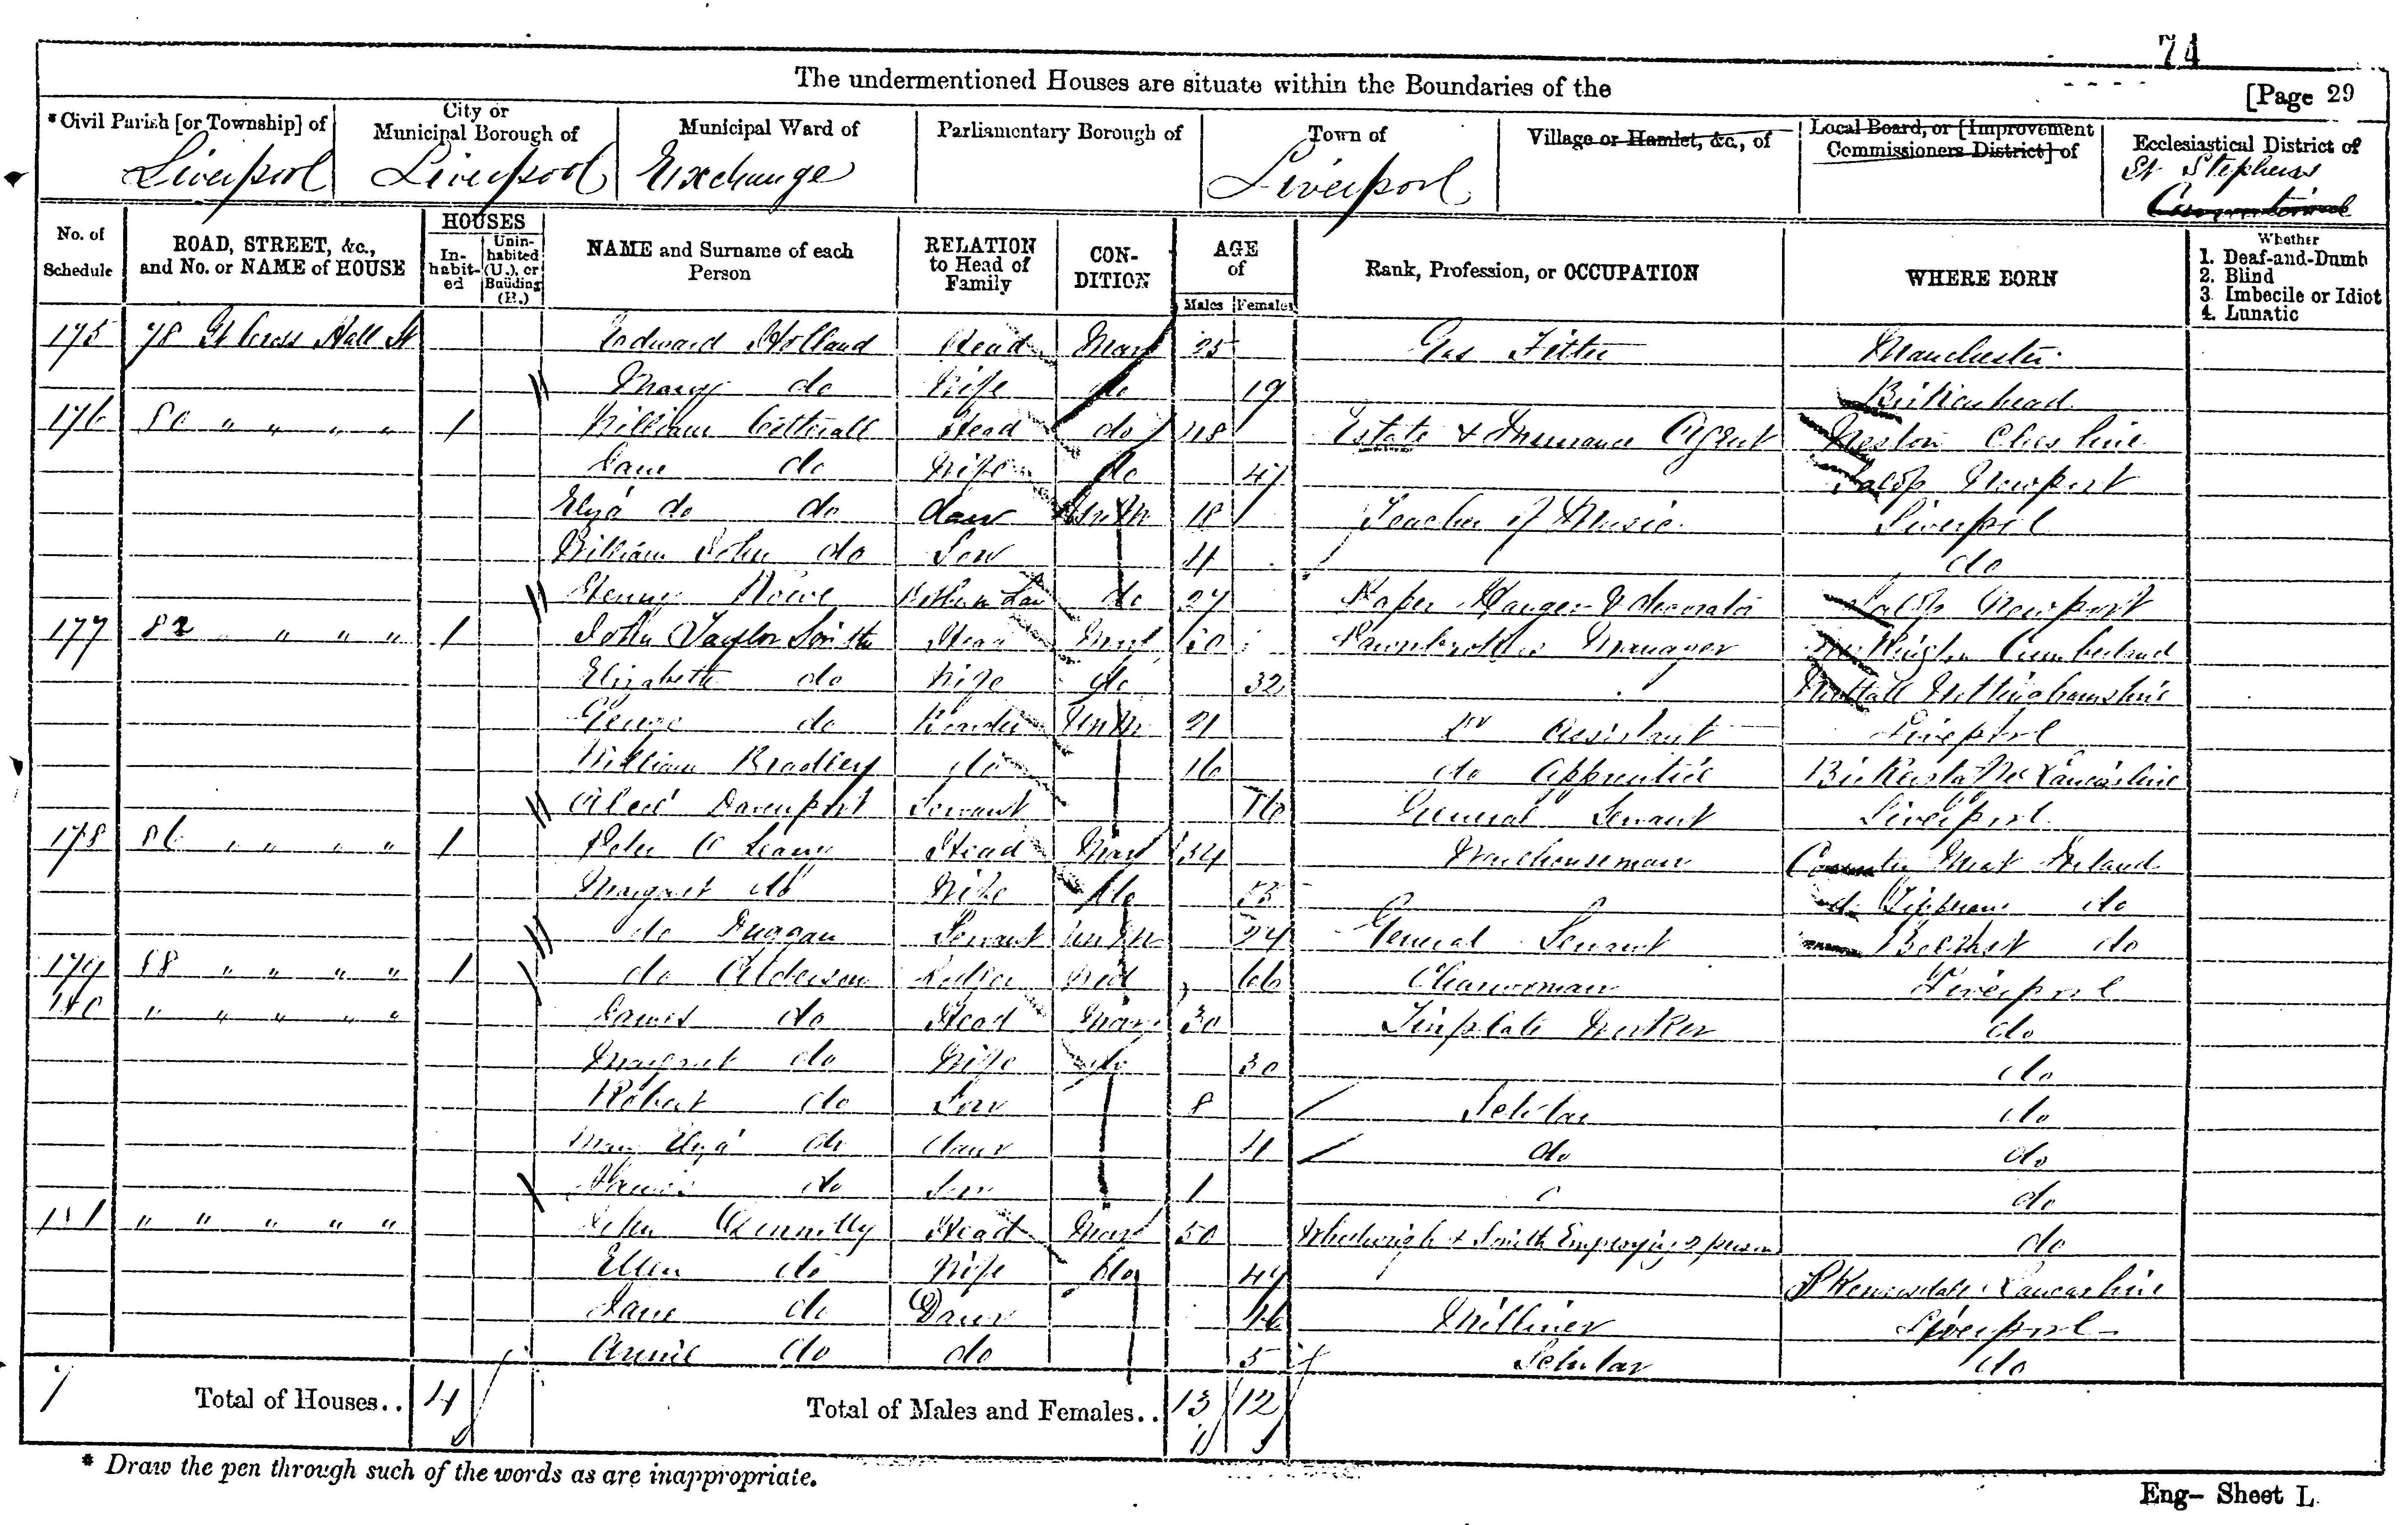 74
The undermentioned Houses are situate within the Boundaries of the
[Page 29
* Civil Parish [or Township] of
Liverpool
City or
Municipal Borough of
Liverpool
Municipal Ward of
Exchange
Parliamentary Borough of
Town of
Liverpool
Village or Hamlet, &c., of
Local Board, or [Improvement
Commissioners District] of
Ecclesiastical District of
St Stephens
No. of
Schedule
ROAD, STREET, &c.,
and No. or NAME of HOUSE
HOUSES
In-
habit-
ed
Unin-
habited
(U.), or
Building
(B.)
NAME and Surname of each
Person
RELATION
to Head of
Family
CON-
DITION
AGE
of
Males Females
Rank, Profession, or OCCUPATION
WHERE BORN
Whether
1. Deaf-and-Dumb
2. Blind
3. Imbecile or Idiot
4. Lunatic
175 78 Gt Cross Hall St Edward Holland Head Mar 25 Gas Fitter Manchester
Mary do Wife do 19 Birkenhead
176 80 " " " " 1 William Head do 48 Estate & Insurance Agent Neston Cheshire
Jane do Wife do 47 Salop Newport
Eliza do do daur UnM 18 Teacher of Music Liverpool
William John do Son 4 do
Henry Brother in Law do 27 Paper Hanger & decorator Salop Newport
177 82 " " " " 1 John Taylor Smith Head Mar Pawnbrokers Manager Cumberland
Elizabeth do Wife do 32 Nottinghamshire
George do Boarder UnM 21 do Assistant Liverpool
William Bradley do 16 do Apprentice Lancashire
Alice Davenport Servant 16 General Servant Liverpool
178 86 " " " " 1 Peter O Leary Head Mar 34 Warehouseman Ireland
Margaret do Wife do do
do Duggan Servant UnM 24 General Servant Belfast do
179 88 " " " " 1 do Alderson Lodger Wid 66 Charwoman Liverpool
180 " " " " " James do Head Mar 30 Tinplate Worker do
Margaret do Wife do 30 do
Robert do Son 8 Scholar do
Mary Eliza do daur 4 do do
do Son 1 do
181 " " " " " John Head Mar 50 Wheelwright & Smith Employing 2 persons do
Ellen do Wife do 47 Lancashire
Jane do Daur 16 Milliner Liverpool
Annie do do 5 Scholar do
7 Total of Houses.. 4 Total of Males and Females.. 13 12
* Draw the pen through such of the words as are inappropriate.
Eng- Sheet L